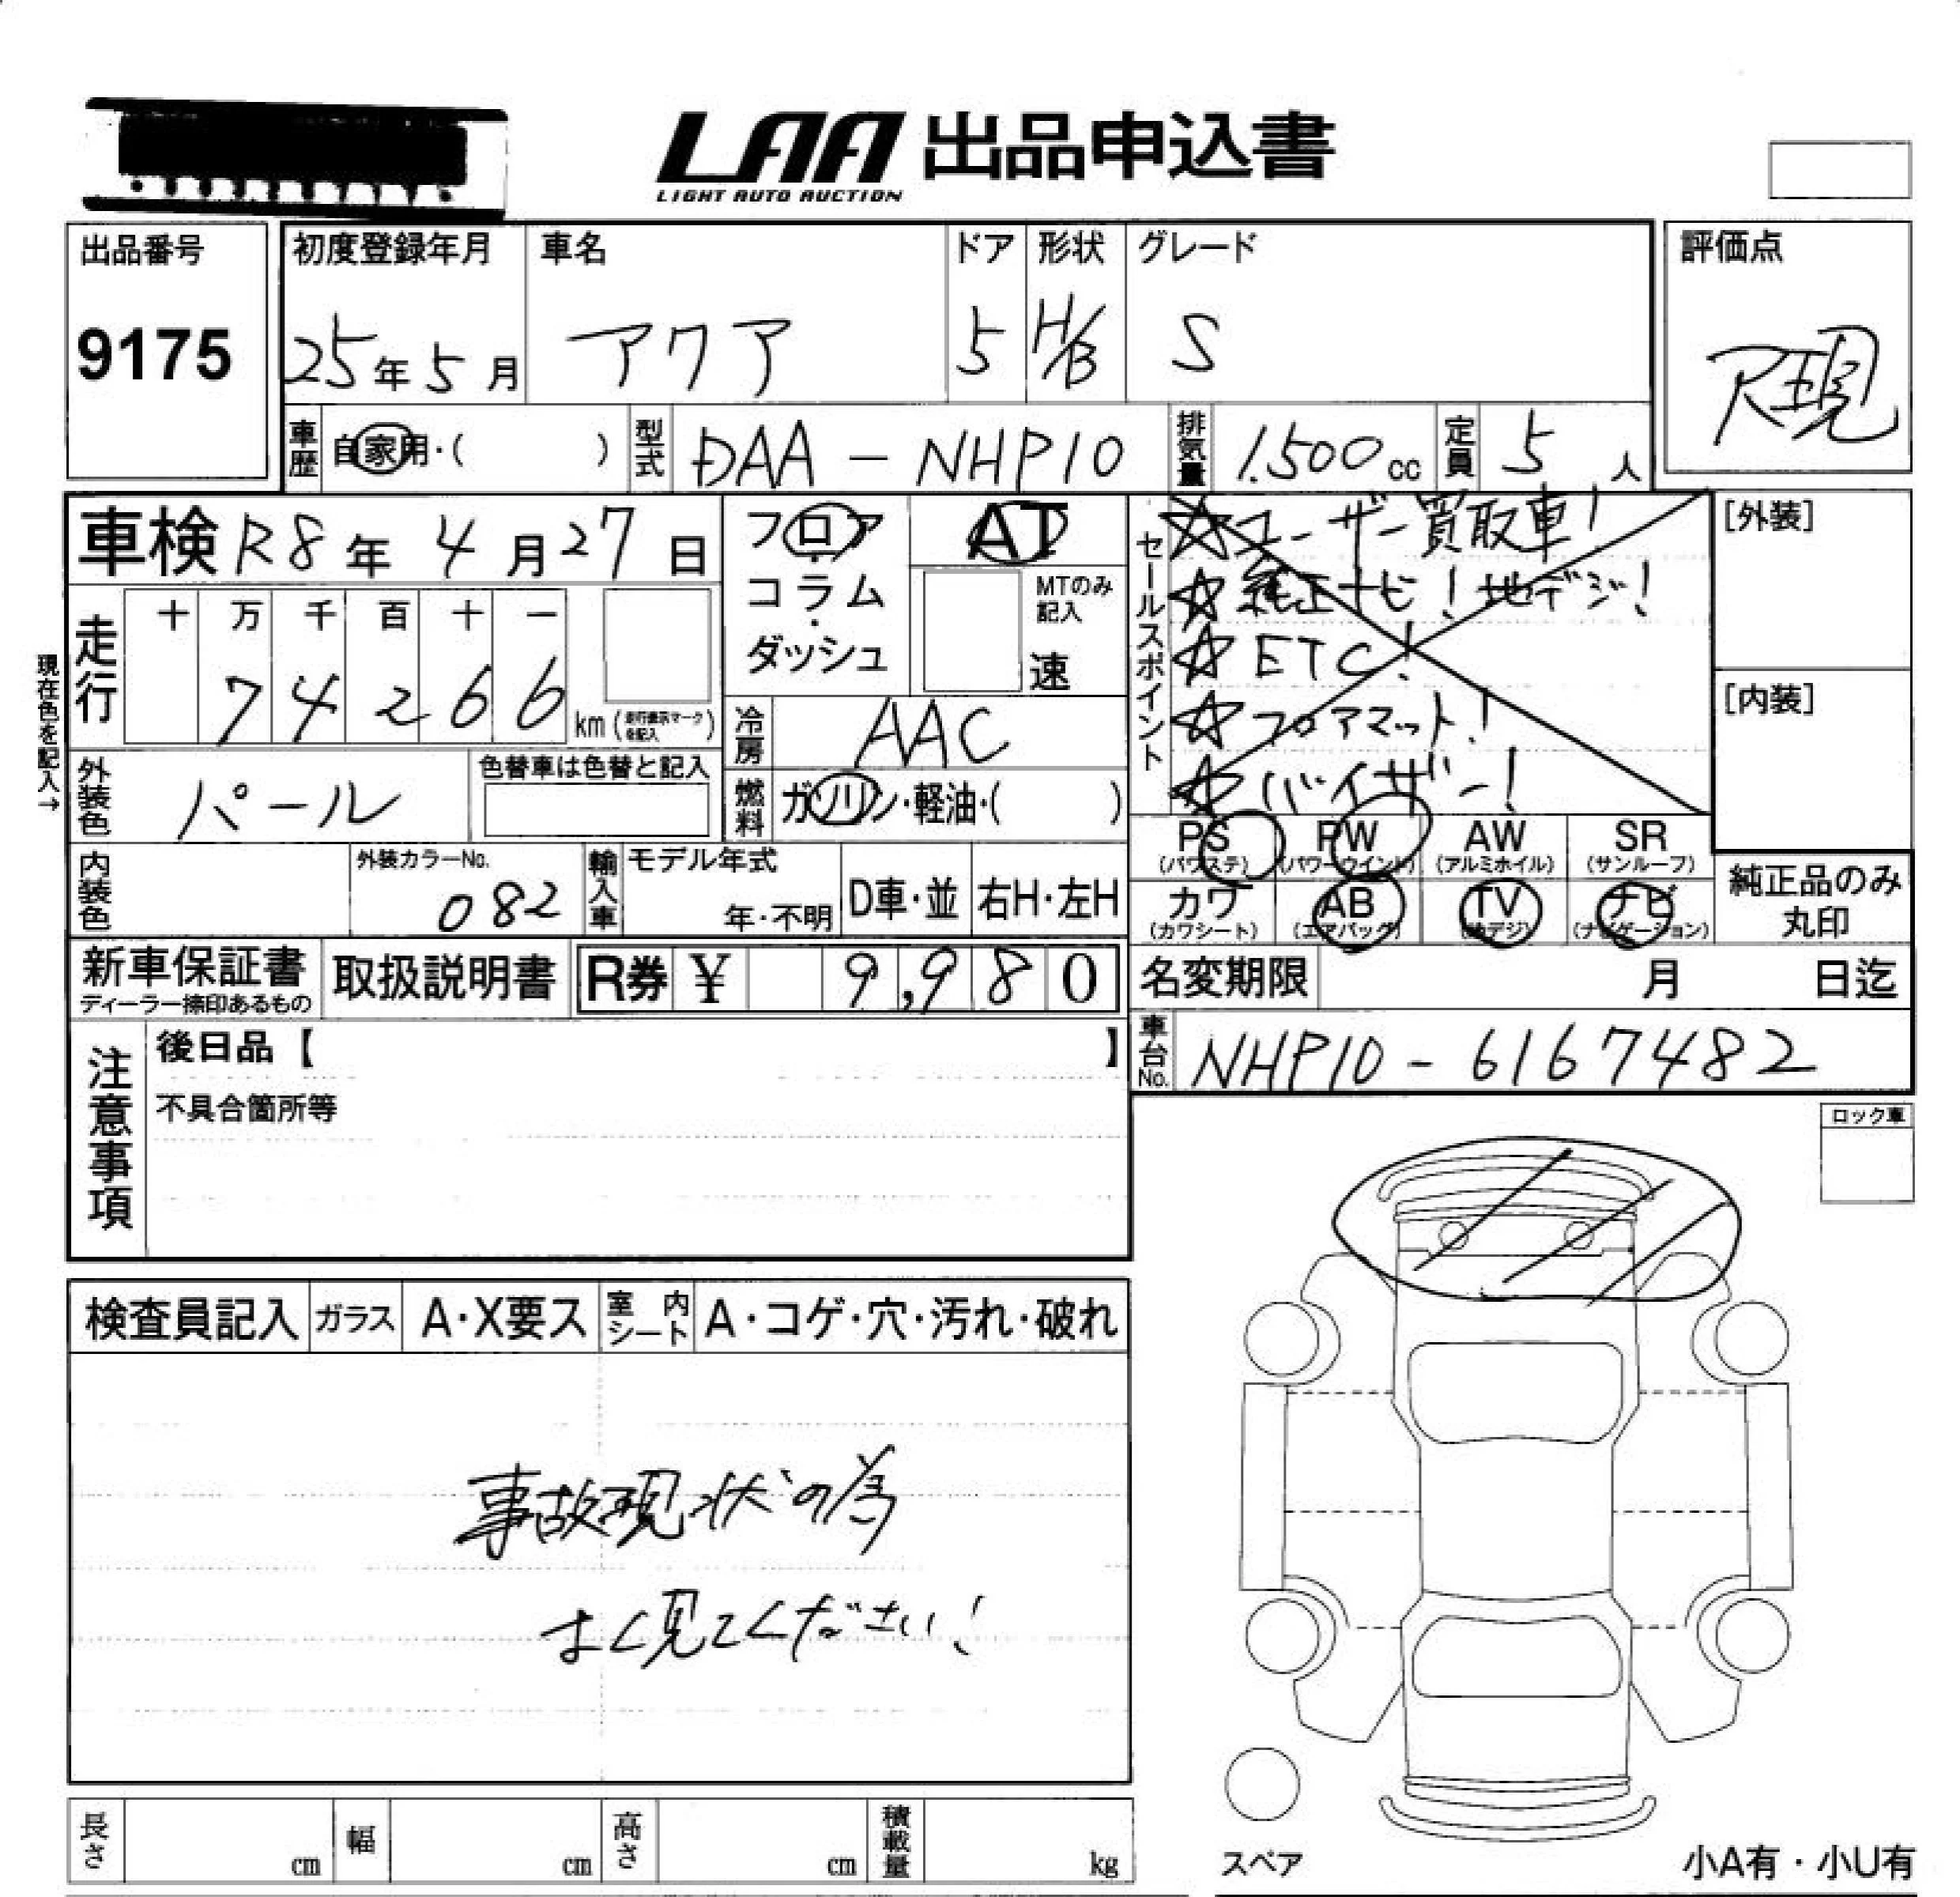 LAA 出品申込書
LIGHT AUTO AUCTION
出品番号
9175
初度登録年月
25年5月
車名
アクア
ドア
5
形状
H/B
グレード
S
評価点
R現
車歴
自家用・( )
型式
DAA-NHP10
排気量
1.500cc
定員
5人
車検 R8年4月27日
フロア・コラム・ダッシュ
AT
MTのみ記入
速
セールスポイント
☆ユーザー買取車!
☆純正ナビ!地デジ!
☆ETC!
☆フロアマット!
☆バイザー!
[外装]
[内装]
現在色を記入→
走行
十 万 千 百 十 一
7 4 2 6 6
km(走行表示マークを記入)
冷房
AAC
外装色
パール
色替車は色替と記入
燃料
ガソリン・軽油・( )
PS
(パワステ)
PW
(パワーウインド)
AW
(アルミホイル)
SR
(サンルーフ)
カワ
(カワシート)
AB
(エアバッグ)
TV
(地デジ)
ナビ
(ナビゲーション)
純正品のみ
丸印
内装色
外装カラーNo.
082
輸入車
モデル年式
年・不明
D車・並
右H・左H
新車保証書
ディーラー捺印あるもの
取扱説明書
R券 ¥ 9,980
名変期限 月 日迄
車台No.
NHP10-6167482
注意事項
後日品【 】
不具合箇所等
ロック車
検査員記入
ガラス
A・X要ス
室内シート
A・コゲ・穴・汚れ・破れ
事故現状の為
よく見てください!
長さ cm
幅 cm
高さ cm
積載量 kg
スペア
小A有・小U有